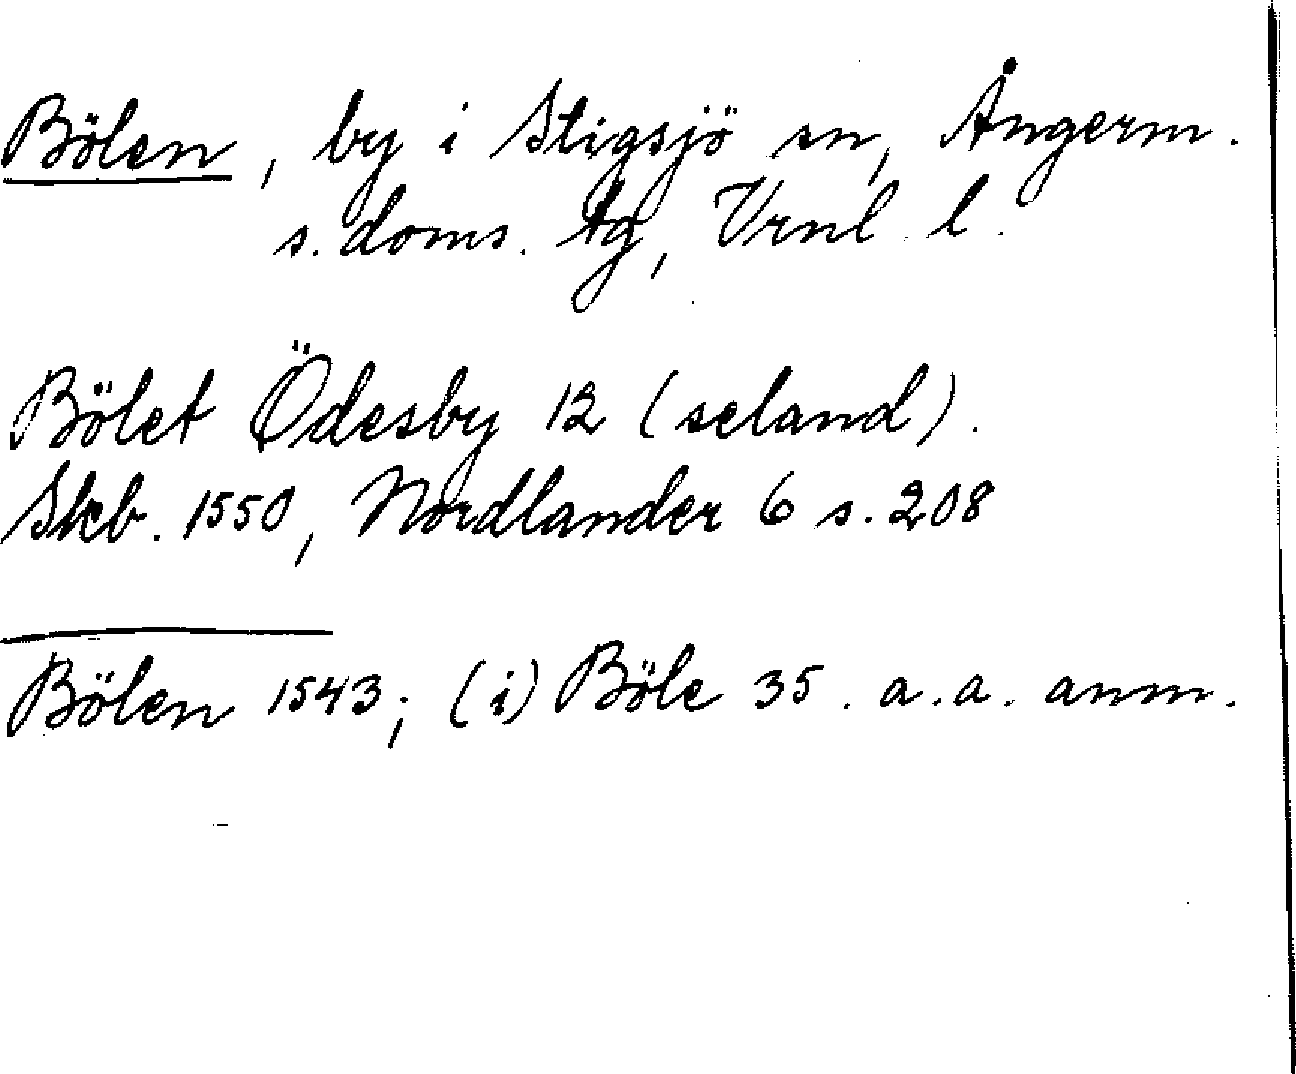 Bölen, by i Stigsjö sn, Ångerm.
s. doms. tg, Vrnl. l.
Bölet Ödesby 12 (seland).
Skb. 1550, Nordlander 6 s. 208
Bölen 1543; (i) Böle 35. a.a. anm.